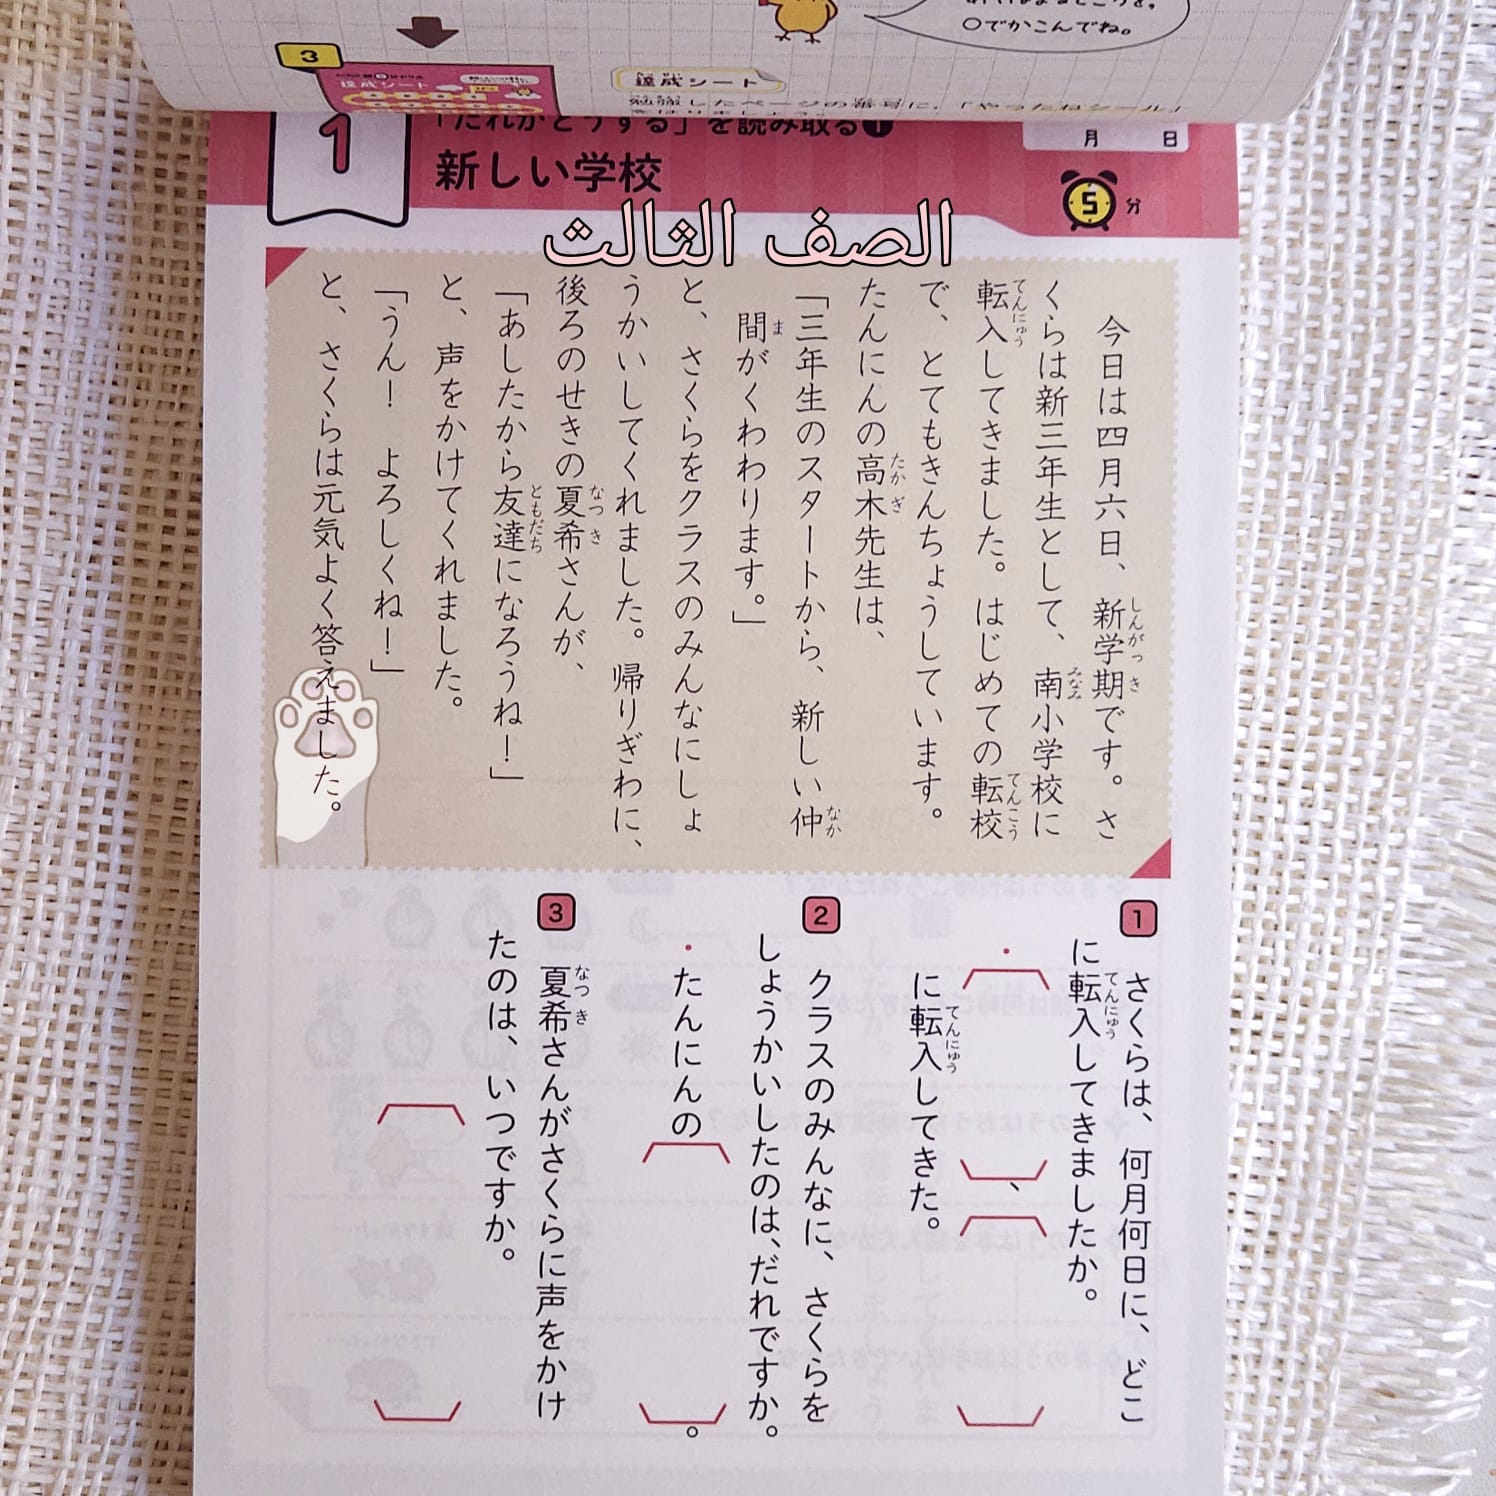 〇でかこんでね。
3
達成シート
達成シート
勉強したページの番号に、「やったねシール」
1
「だれがどうする」を読み取る❶
新しい学校
月 日
5分
الصف الثالث
今日は四月六日、新学期です。さ
くらは新三年生として、南小学校に
転入してきました。はじめての転校
で、とてもきんちょうしています。
たんにんの高木先生は、
「三年生のスタートから、新しい仲
間がくわわります。」
と、さくらをクラスのみんなにしょ
うかいしてくれました。帰りぎわに、
後ろのせきの夏希さんが、
「あしたから友達になろうね!」
と、声をかけてくれました。
「うん! よろしくね!」
と、さくらは元気よく答えました。
1 さくらは、何月何日に、どこ
に転入してきましたか。
・( )、( )
に転入してきた。
2 クラスのみんなに、さくらを
しょうかいしたのは、だれですか。
・たんにんの( )。
3 夏希さんがさくらに声をかけ
たのは、いつですか。
( )